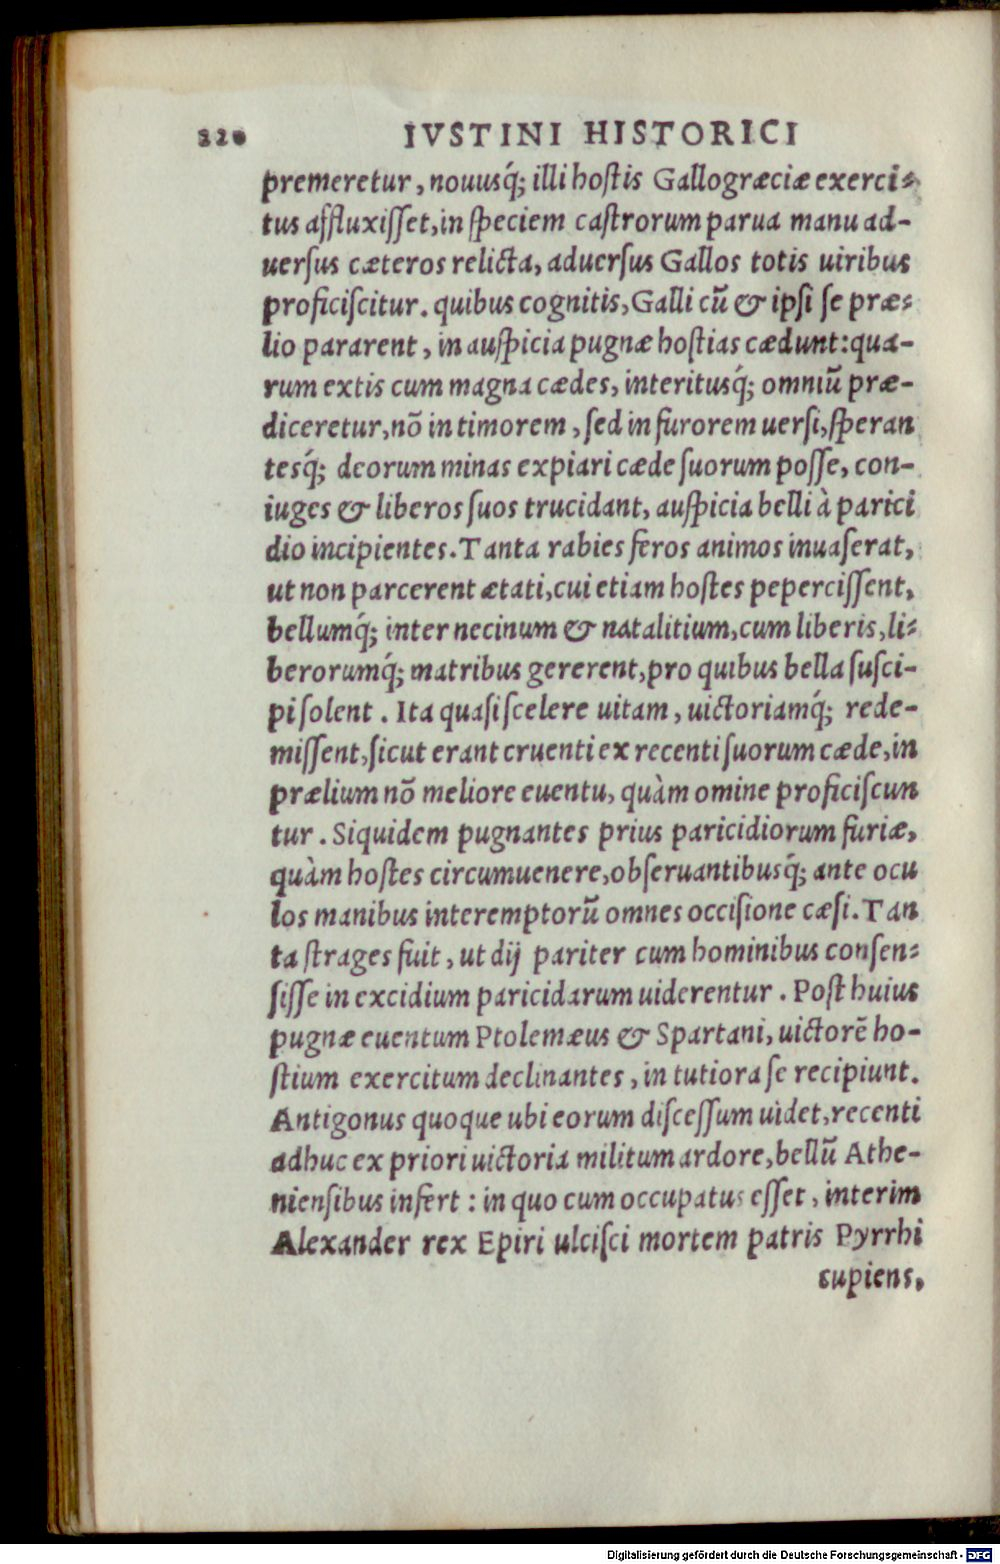 220 IVSTINI HISTORICI
premeretur, nouusq́; illi hostis Gallogræciæ exerci-
tus affluxisset, in speciem castrorum parua manu ad-
uersus cæteros relicta, aduersus Gallos totis uiribus
proficiscitur. quibus cognitis, Galli cũ & ipsi se præ-
lio pararent, in auspicia pugnæ hostias cædunt: qua-
rum extis cum magna cædes, interitusq́; omniũ præ-
diceretur, nõ in timorem, sed in furorem uersi, speran
tesq́; deorum minas expiari cæde suorum posse, con-
iuges & liberos suos trucidant, auspicia belli à parici
dio incipientes. Tanta rabies feros animos inuaserat,
ut non parcerent ætati, cui etiam hostes pepercissent,
bellumq́; inter necinum & natalitium, cum liberis, li-
berorumq́; matribus gererent, pro quibus bella susci-
pi solent. Ita quasi scelere uitam, uictoriamq́; rede-
missent, sicut erant cruenti ex recenti suorum cæde, in
prælium nõ meliore euentu, quàm omine proficiscun
tur. Siquidem pugnantes prius paricidiorum furiæ,
quàm hostes circumuenere, obseruantibusq́; ante ocu
los manibus interemptorũ omnes occisione cæsi. Tan
ta strages fuit, ut dij pariter cum hominibus consen-
sisse in excidium paricidarum uiderentur. Post huius
pugnæ euentum Ptolemæus & Spartani, uictorẽ ho-
stium exercitum declinantes, in tutiora se recipiunt.
Antigonus quoque ubi eorum discessum uidet, recenti
adhuc ex priori uictoria militum ardore, bellũ Athe-
niensibus infert: in quo cum occupatus esset, interim
Alexander rex Epiri ulcisci mortem patris Pyrrhi
cupiens,
Digitalisierung gefördert durch die Deutsche Forschungsgemeinschaft - DFG